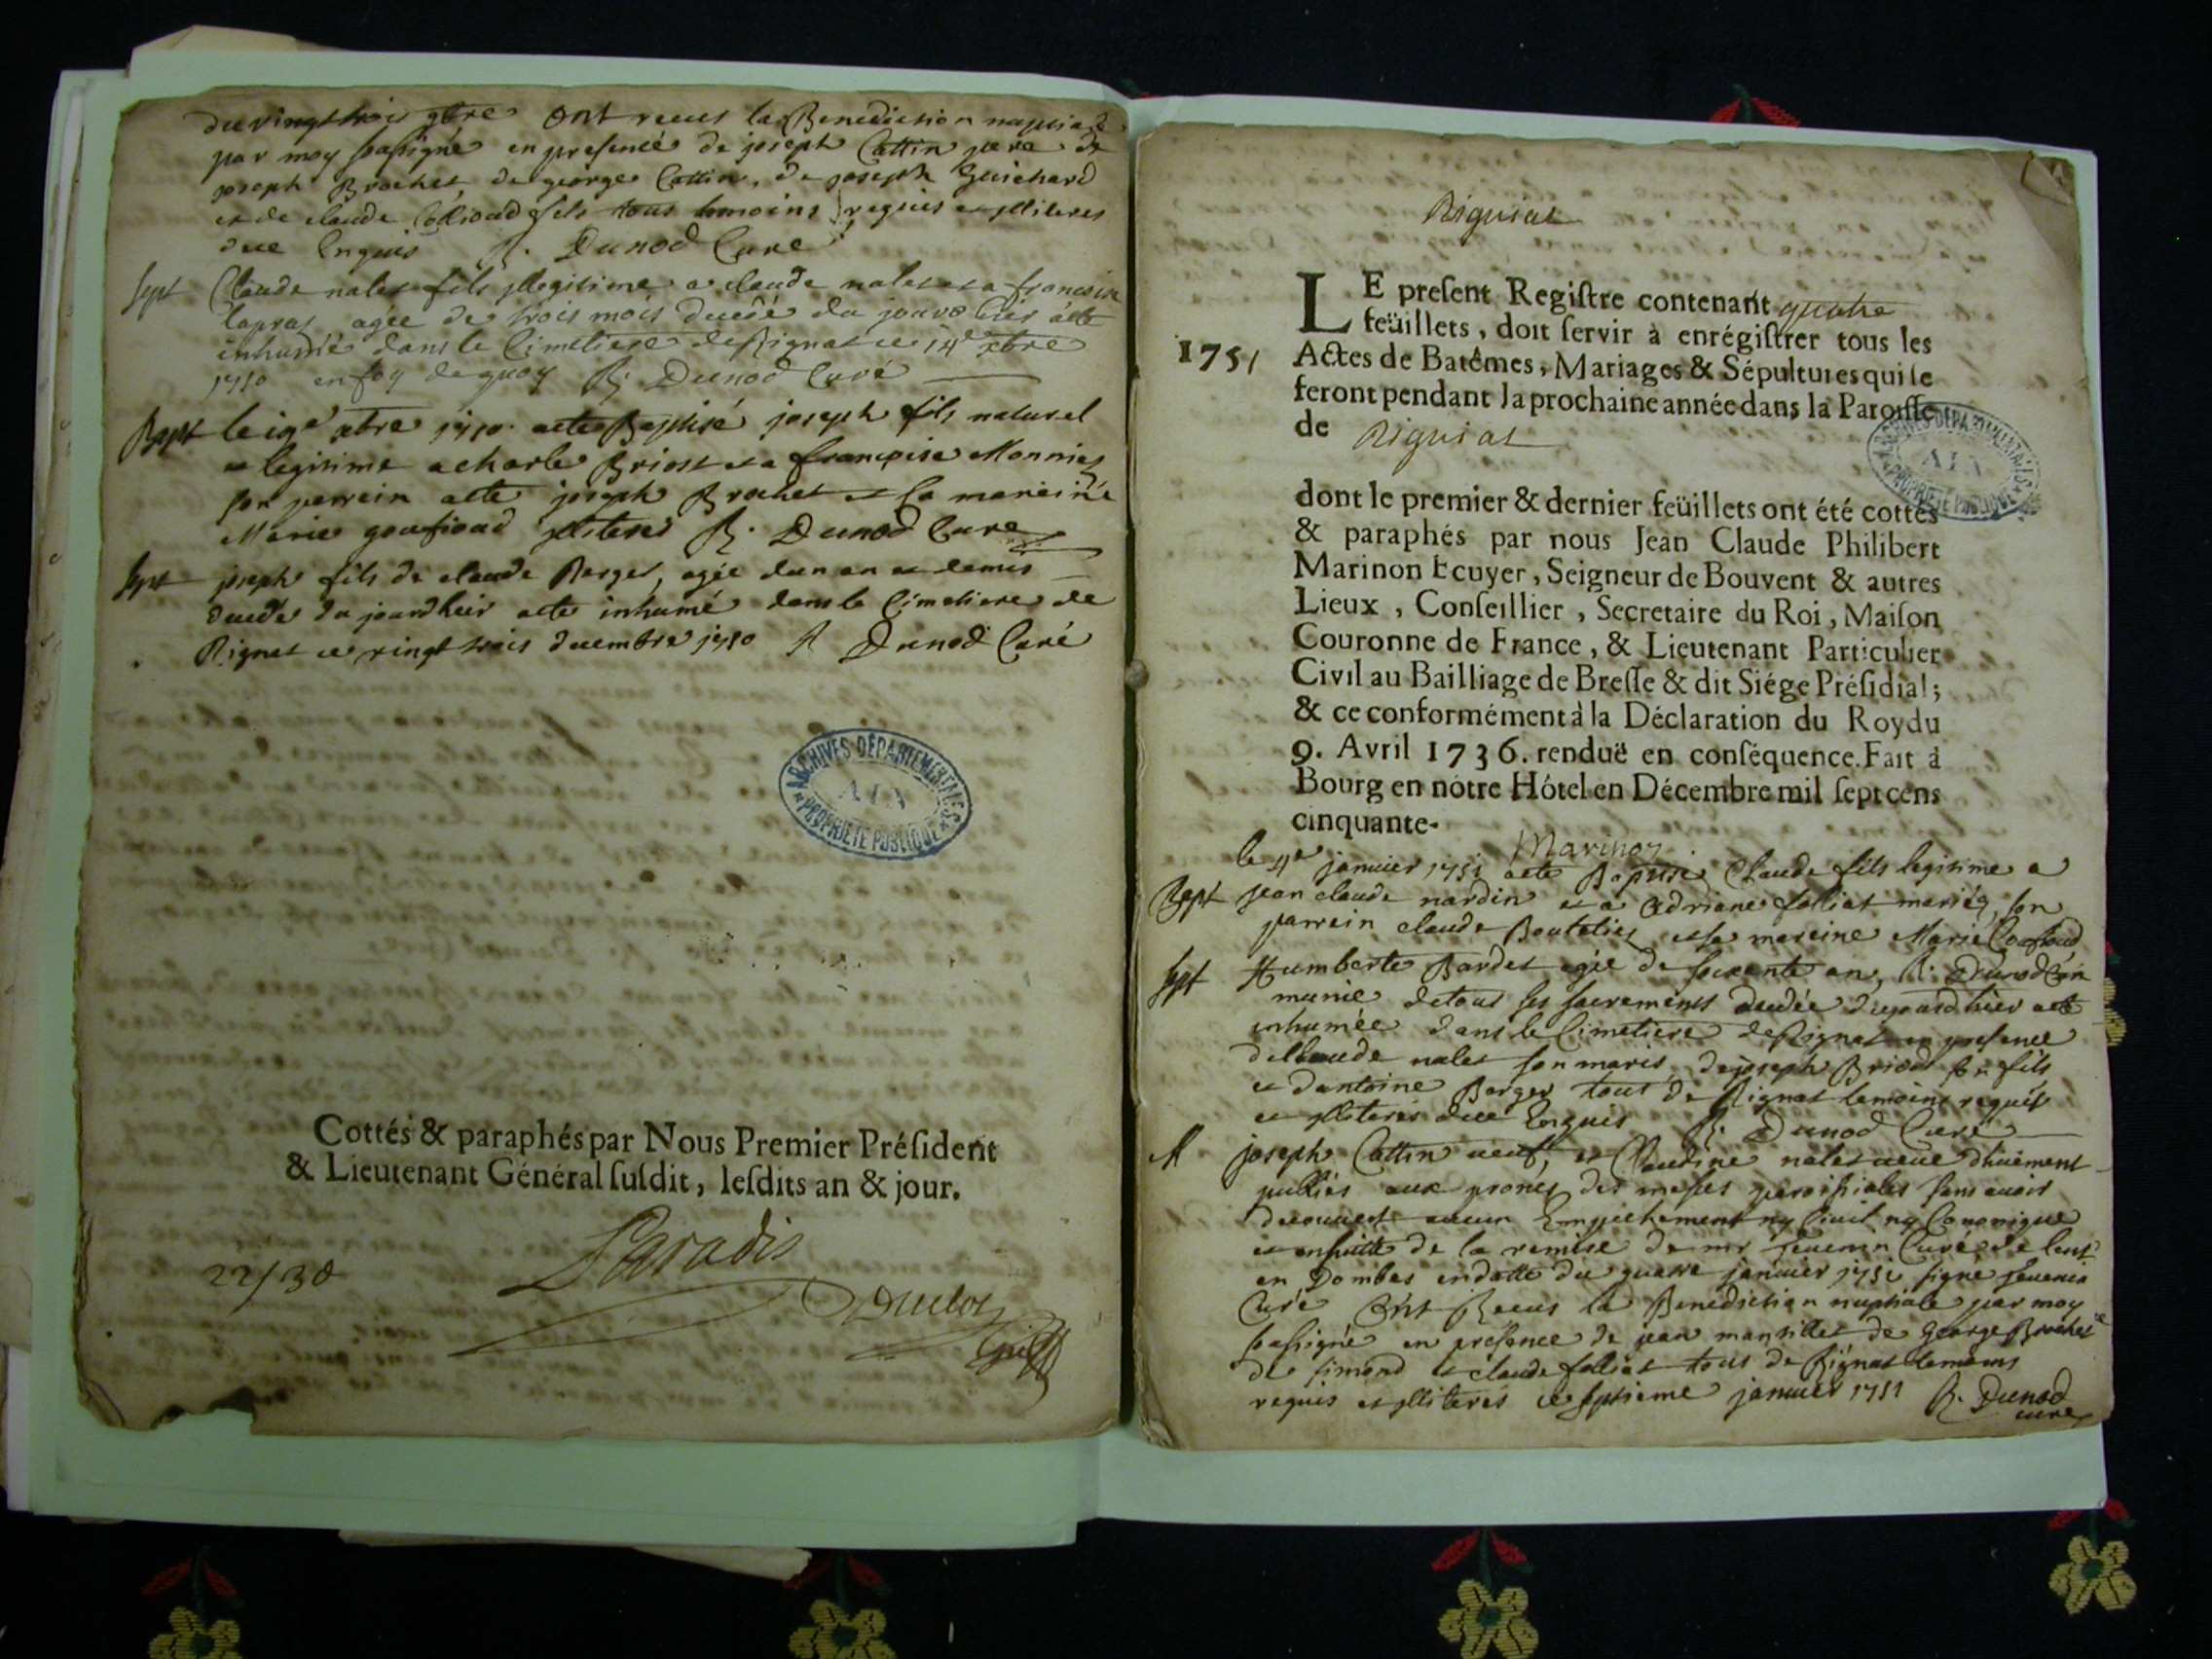 du vingt trois 9bre ont receus la Benediction nuptiale
par moy soussigné en presence de joseph Cottin pere de
joseph Brochet, de george Cottin, de joseph Guichard
et de claude fils tous temoins requis et illiteres
due Enquis R. Dunod Curé
Sept Claude nalet fils illegitime a claude nalet et a francoise
lapras agée de trois mois decedé du jourd hier a été
inhumé dans le Cimetiere de Rignat ce 14e xbre
1750 en foy de quoy R. Dunod Curé
Bapt le 19e xbre 1750 a ete Baptisé joseph fils naturel
et legitime a charle Briost et a francoise Monnier
son parrein a ete joseph Brochet et sa mareine
Marie goufioud illiteres R. Dunod Curé
Sept joseph fils de claude Berger, agée d'un an et demis
decedé du jourdhuir a ete inhumé dans le Cimetiere de
Rignat ce vingt trois decembre 1750 R Dunod Curé
ARCHIVES DÉPARTEMENTALES
AIN
PROPRIETE PUBLIQUE
Cottés & paraphés par Nous Premier Préſident
& Lieutenant Général ſuſdit, leſdits an & jour.
Paradis
22/30
Rigniat
LE preſent Regiſtre contenant quatre
feüillets, doit ſervir à enrégiſtrer tous les
1751 Actes de Batêmes, Mariages & Sépultures qui ſe
feront pendant la prochaine année dans la Paroiſſe
de Rigniat
ARCHIVES DÉPARTEMENTALES
AIN
PROPRIETE PUBLIQUE
dont le premier & dernier feüillets ont été cottés
& paraphés par nous Jean Claude Philibert
Marinon Ecuyer, Seigneur de Bouvent & autres
Lieux, Conſeillier, Secretaire du Roi, Maiſon
Couronne de France, & Lieutenant Particulier
Civil au Bailliage de Breſſe & dit Siége Préſidial;
& ce conformément à la Déclaration du Roy du
9. Avril 1736. renduë en conſéquence. Fait à
Bourg en nótre Hótel en Décembre mil ſept cens
cinquante.
Marinon
le 4e janvier 1751 a ete Baptisé Claude fils legitime a
Bapt jean claude nardin et a Adriane folliet mariés, son
parrein claude Boutelier et sa mareine Marie
Sept Humberte Bardet agée de soixente an, R. Dunod Curé
munie de tous ses sacrements decedée du jourd hier a ete
inhumée dans le Cimetiere de Rignat en presence
de Claude nalet son maris, de joseph Briost son fils
et d'antoine Berger tous de Rignat temoins requis
et illiteres due Enquis R. Dunod Curé
M joseph Cottin veuf, et Claudine nalet veuve dhuëment
publiés aux prones des messes paroissiales sans avoir
decouvert aucun Empechement ny Civil ny Canonique
et ensuitte de la remise de mr Curé de lent
en Dombes en datte du quatre janvier 1751 signé
Curé Ont Receus la Benediction nuptiale par moy
soussigné en presence de jean mansillet de George Brochet
de simond et claude folliet tous de Rignat temoins
requis et illiteres ce septieme janvier 1751 R. Dunod
curé